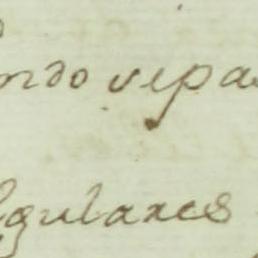 ndo vepa
egulares